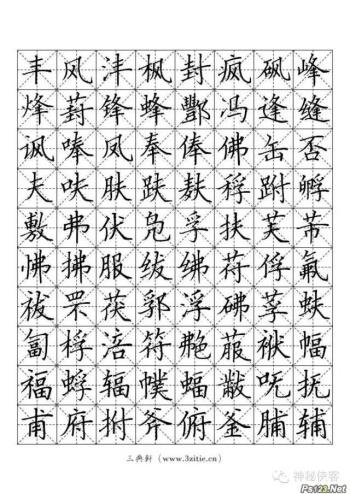 丰风沣枫封疯砜峰
烽葑锋蜂酆冯逢缝
讽唪凤奉俸佛缶否
夫呋肤趺麸稃跗孵
敷弗伏凫孚扶芙芾
怫拂服绂绋苻俘氟
祓罘茯郛浮砩莩蚨
匐桴涪符艴菔袱幅
福蜉辐幞蝠黻呒抚
甫府拊斧俯釜脯辅
三典轩（www.3zitie.cn）
神秘侠客
Ps123.Net